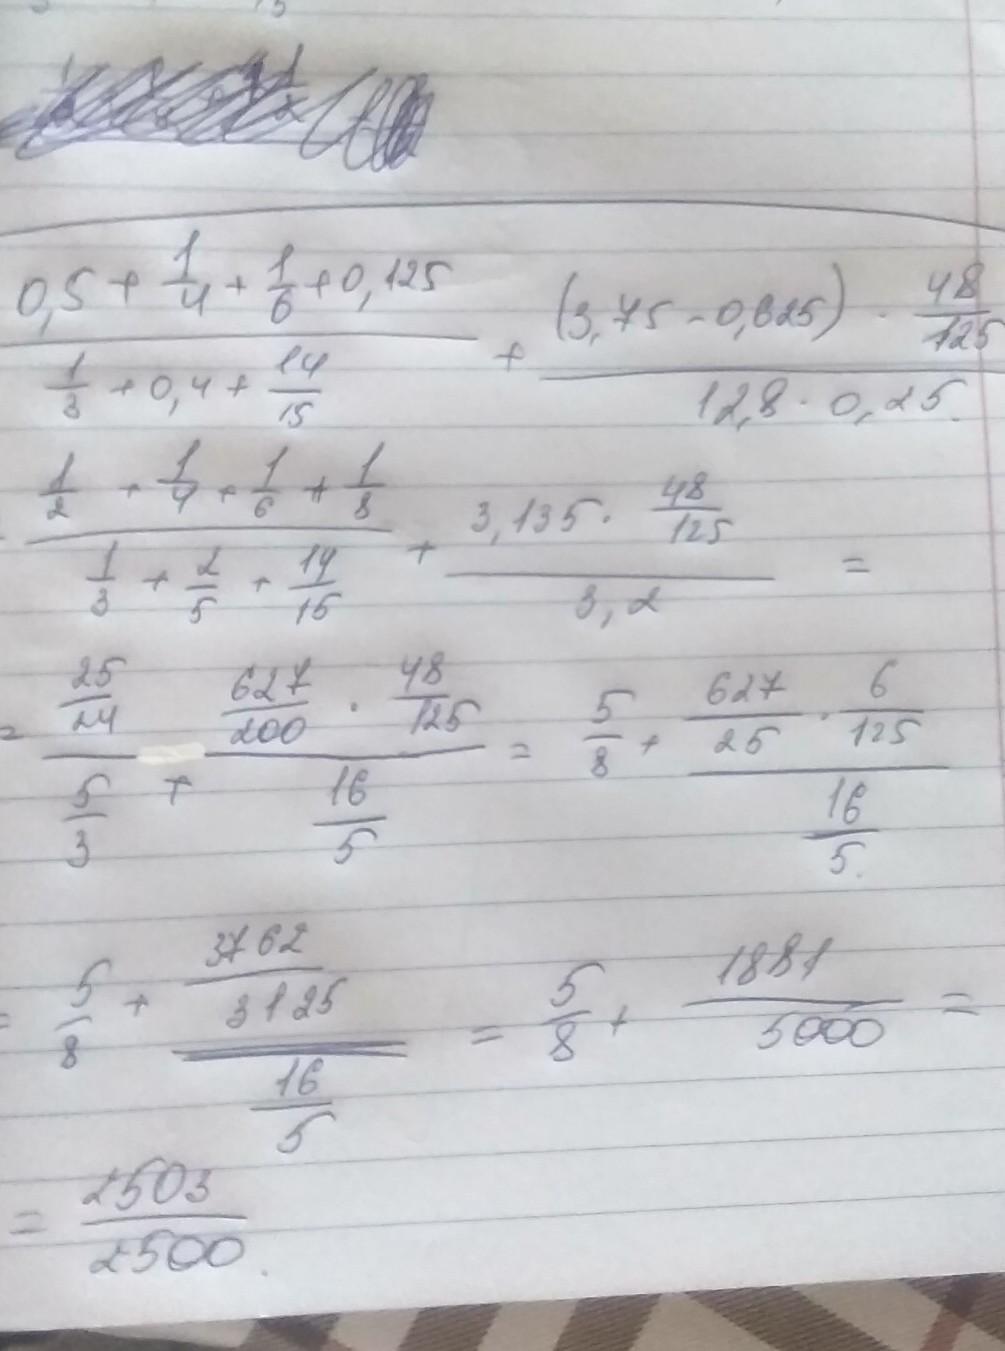 (0,5 + 1/4 + 1/6 + 0,125) / (1/3 + 0,4 + 14/15) + ((3,75 - 0,625) · 48/125) / (12,8 · 0,25)
(1/2 + 1/4 + 1/6 + 1/8) / (1/3 + 2/5 + 14/15) + (3,135 · 48/125) / (3,2) =
= (25/24) / (5/3) + (627/200 · 48/125) / (16/5) = 5/8 + (627/25 · 6/125) / (16/5)
= 5/8 + (3762/3125) / (16/5) = 5/8 + 1881/5000 =
= 2503/2500